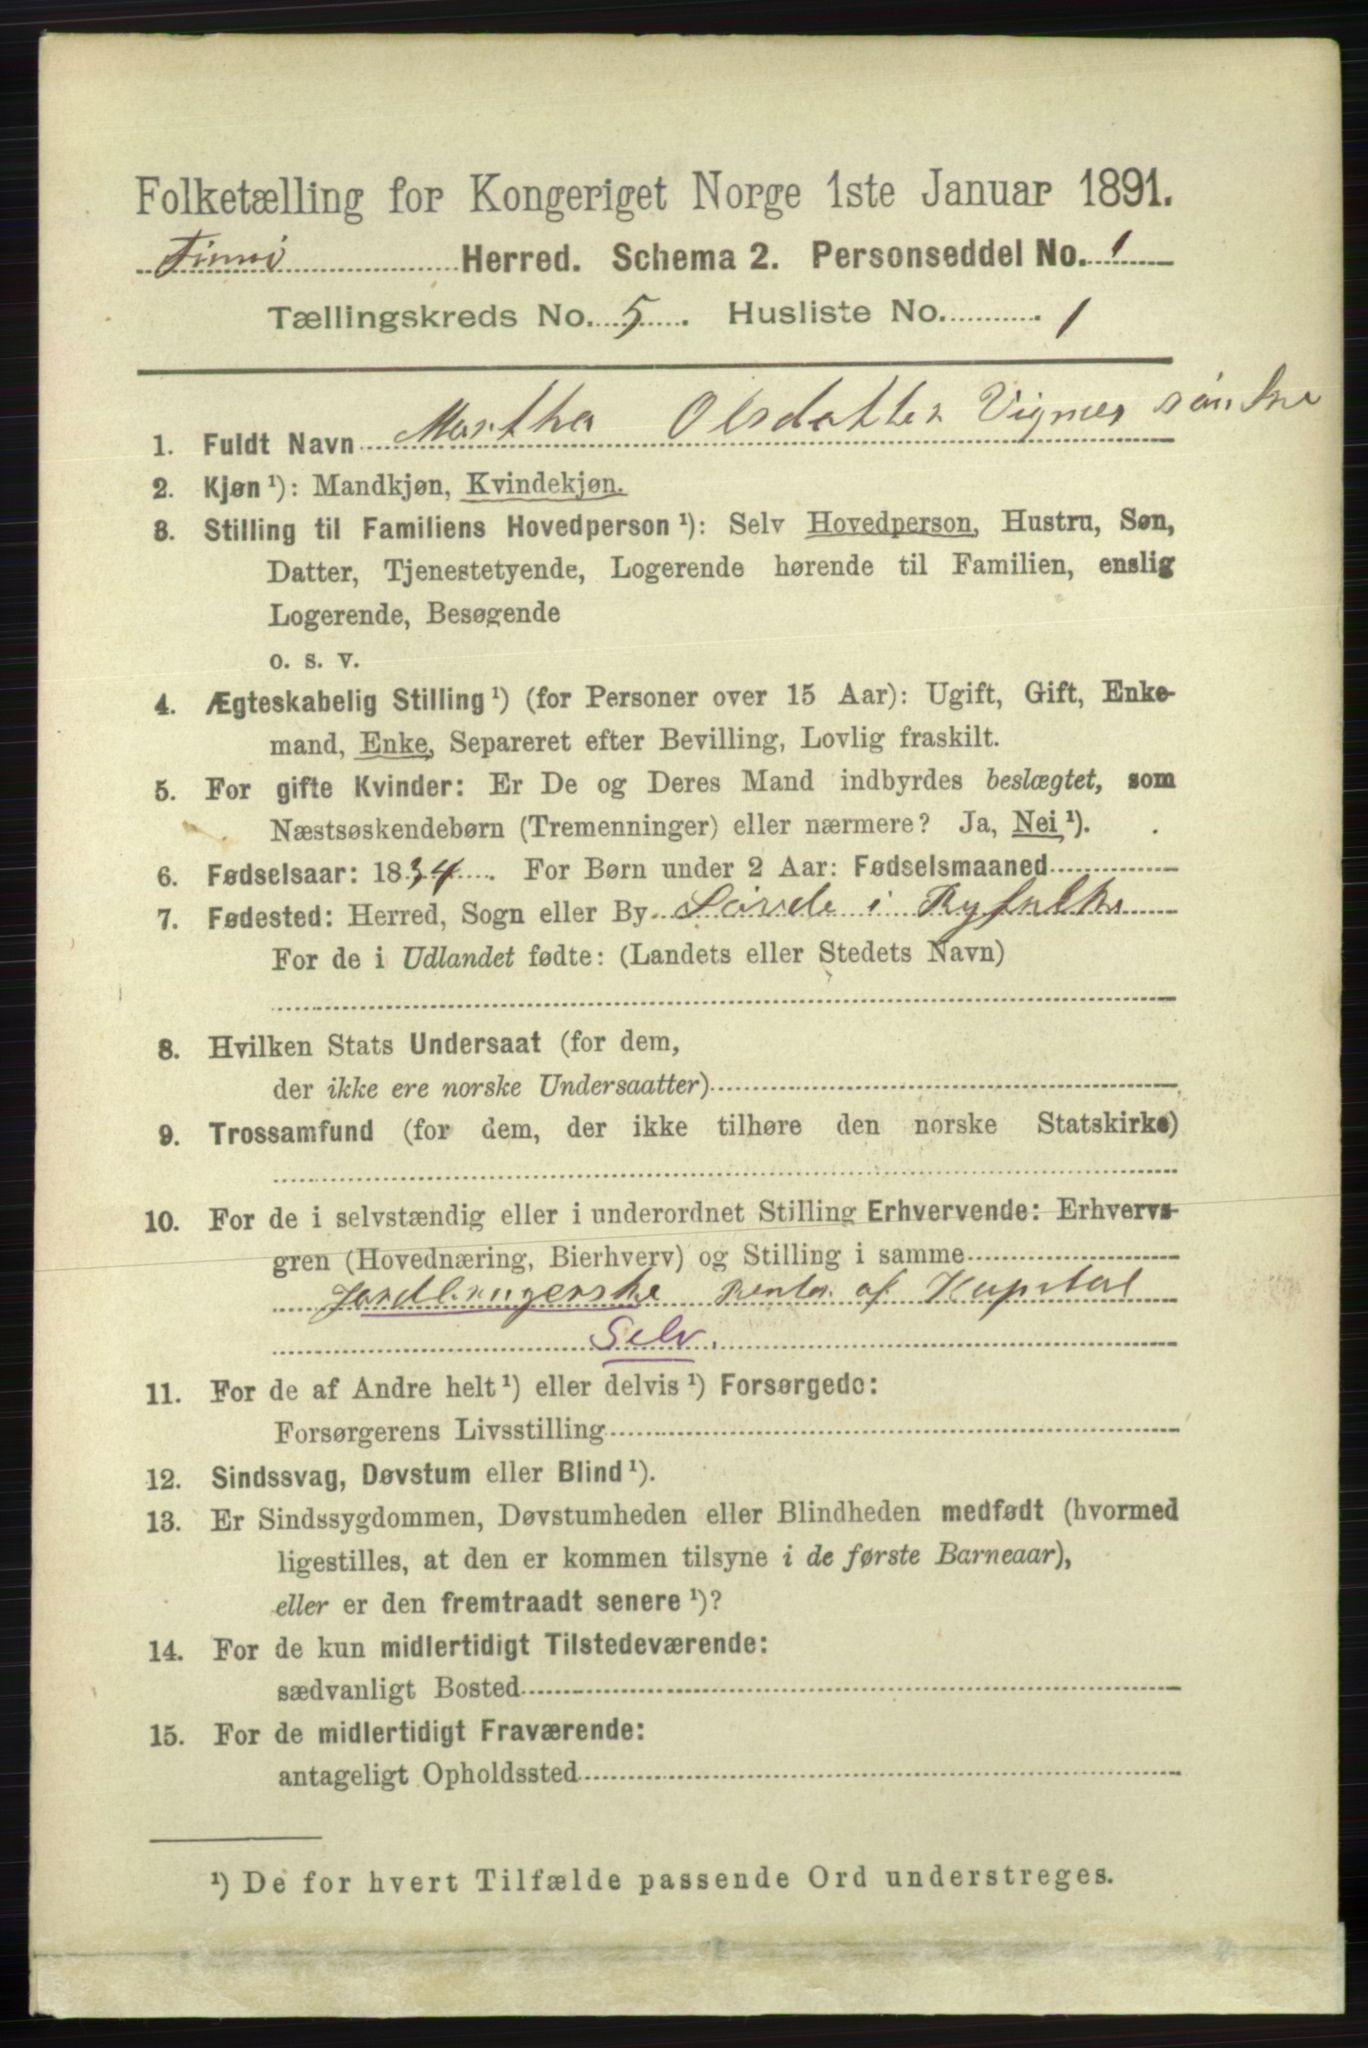 Folketælling for Kongeriget Norge 1ste Januar 1891.
Finnö Herred. Schema 2. Personseddel No. 1
Tællingskreds No. 5. Husliste No. 1
1. Fuldt Navn Martha Olsdatter Vignes
2. Kjøn¹): Mandkjøn, Kvindekjøn.
3. Stilling til Familiens Hovedperson¹): Selv Hovedperson, Hustru, Søn,
Datter, Tjenestetyende, Logerende hørende til Familien, enslig
Logerende, Besøgende
o. s. v.
4. Ægteskabelig Stilling¹) (for Personer over 15 Aar): Ugift, Gift, Enke-
mand, Enke, Separeret efter Bevilling, Lovlig fraskilt.
5. For gifte Kvinder: Er De og Deres Mand indbyrdes beslægtet, som
Næstsøskendebørn (Tremenninger) eller nærmere? Ja, Nei¹).
6. Fødselsaar: 1834. For Børn under 2 Aar: Fødselsmaaned
7. Fødested: Herred, Sogn eller By Søvde i Ryfylke
For de i Udlandet fødte: (Landets eller Stedets Navn)
8. Hvilken Stats Undersaat (for dem,
der ikke ere norske Undersaatter)
9. Trossamfund (for dem, der ikke tilhøre den norske Statskirke)
10. For de i selvstændig eller i underordnet Stilling Erhvervende: Erhvervs-
gren (Hovednæring, Bierhverv) og Stilling i samme
Jordbrugerske Renter af Kapital
Selv.
11. For de af Andre helt¹) eller delvis¹) Forsørgede:
Forsørgerens Livsstilling
12. Sindssvag, Døvstum eller Blind¹).
13. Er Sindssygdommen, Døvstumheden eller Blindheden medfødt (hvormed
ligestilles, at den er kommen tilsyne i de første Barneaar),
eller er den fremtraadt senere¹)?
14. For de kun midlertidigt Tilstedeværende:
sædvanligt Bosted
15. For de midlertidigt Fraværende:
antageligt Opholdssted
¹) De for hvert Tilfælde passende Ord understreges.